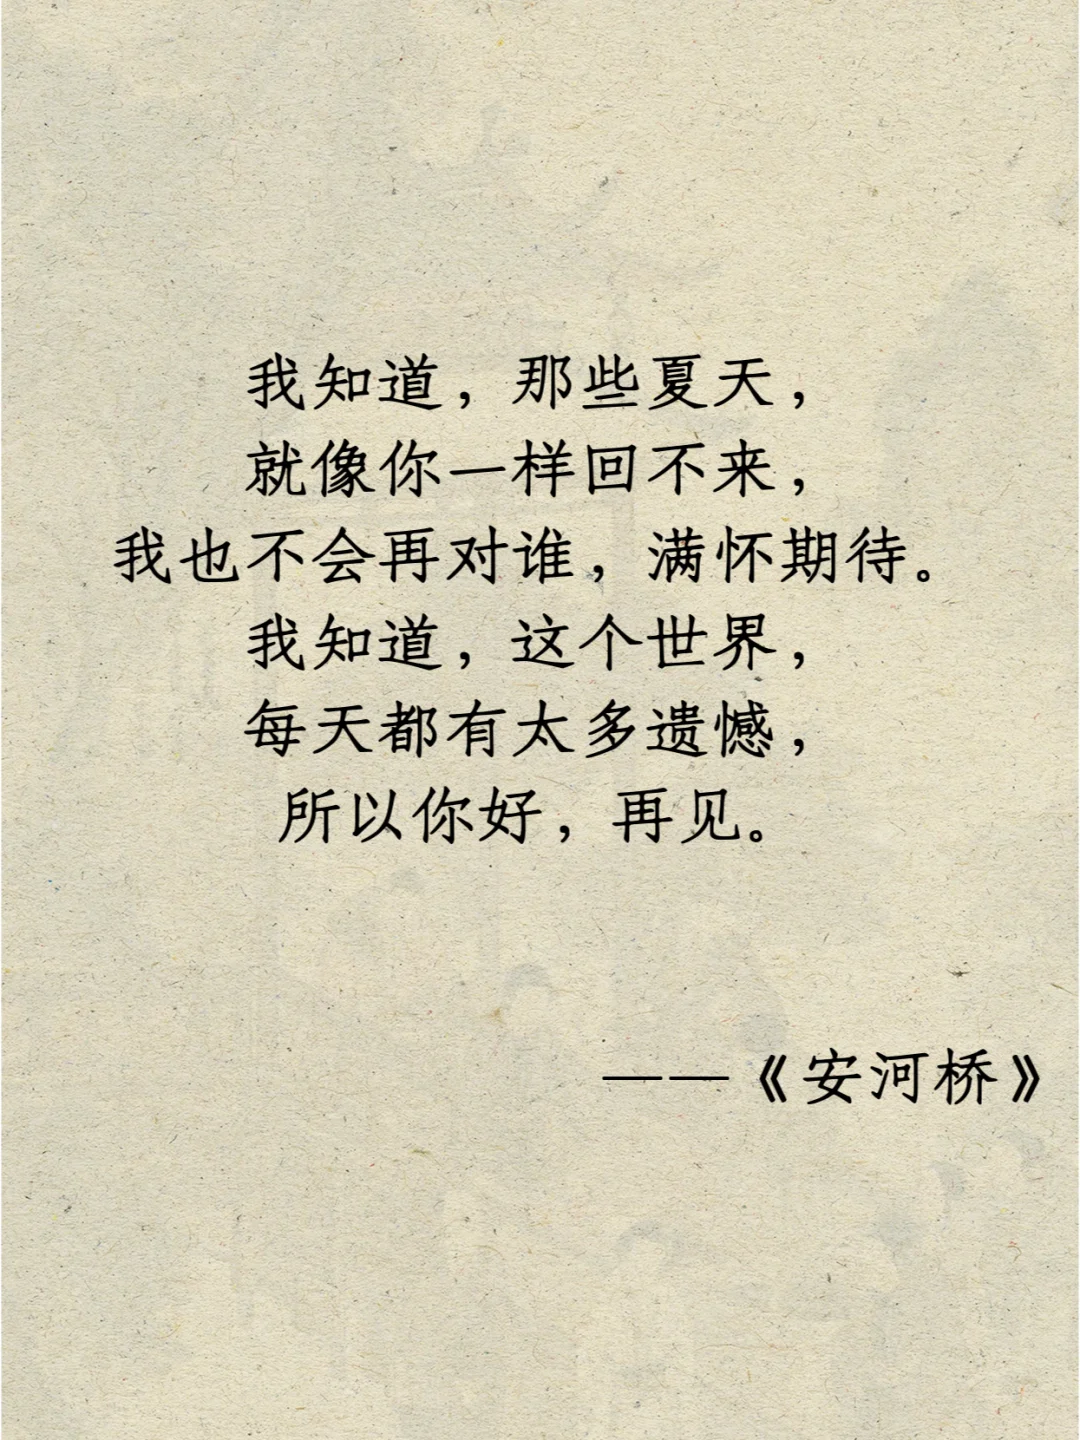 我知道，那些夏天，
就像你一样回不来，
我也不会再对谁，满怀期待。
我知道，这个世界，
每天都有太多遗憾，
所以你好，再见。
——《安河桥》